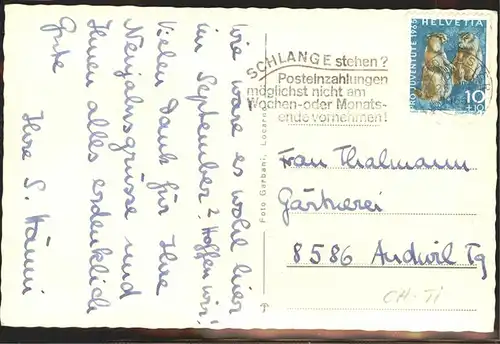 Wie wäre es wohl hier
im September? Hoffen wir!
Vielen Dank für Ihre
Neujahrsgrüsse und
Ihnen alles erdenklich
Gute
Ihre S. Hänni
Foto Garbani, Locarno
SCHLANGE stehen?
Posteinzahlungen
möglichst nicht am
Wochen- oder Monats-
ende vornehmen!
HELVETIA
PRO JUVENTUTE 1965
10
+10
Frau Thalmann
Gärtnerei
8586 Andwil Tg
CH-TI